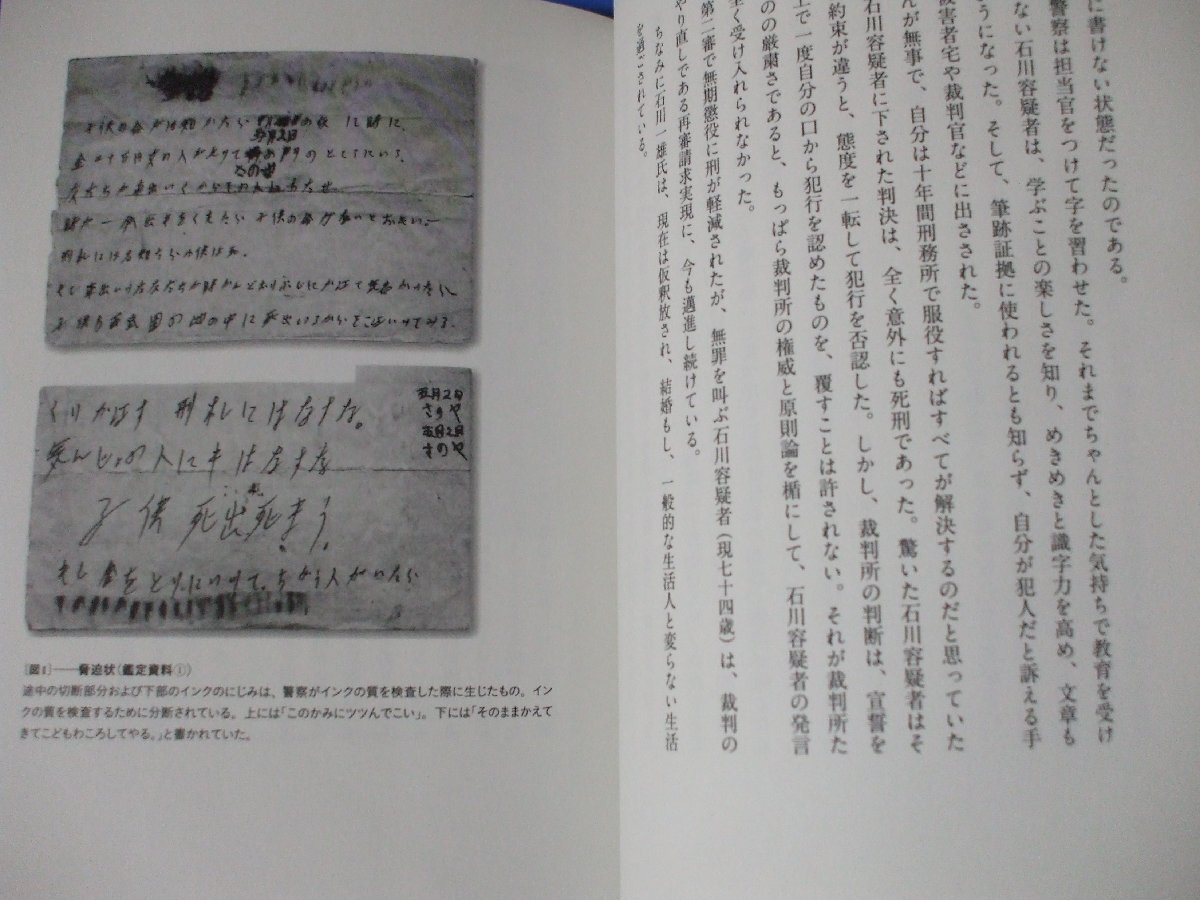 に書けない状態だったのである。
警察は担当官をつけて字を習わせた。それまでちゃんとした気持ちで教育を受け
ない石川容疑者は、学ぶことの楽しさを知り、めきめきと識字力を高め、文章も
うになった。そして、筆跡証拠に使われるとも知らず、自分が犯人だと訴える手
被害者宅や裁判官などに出さされた。
んが無事で、自分は十年間刑務所で服役すればすべてが解決するのだと思っていた
石川容疑者に下された判決は、全く意外にも死刑であった。驚いた石川容疑者はそ
約束が違うと、態度を一転して犯行を否認した。しかし、裁判所の判断は、宣誓を
上で一度自分の口から犯行を認めたものを、覆すことは許されない。それが裁判所た
のの厳粛さであると、もっぱら裁判所の権威と原則論を楯にして、石川容疑者の発言
全く受け入れられなかった。
第二審で無期懲役に刑が軽減されたが、無罪を叫ぶ石川容疑者(現七十四歳)は、裁判の
やり直しである再審請求実現に、今も邁進し続けている。
ちなみに石川一雄氏は、現在は仮釈放され、結婚もし、一般的な生活人と変らない生活
を過ごされている。
子供の命がほ知かたら
の夜 に時に、
五月2日
金二十万円女の人がもッて
さのヤ
の門のところにいろ
時が一分出もをくれたら子供の命がないとおもい。
刑札には名知たら小供は死。
くりかえす 刑札にはなすな。
気んじょの人にもはなすな
子供死出死まう。
もし金をとりにいッて、ちがう人がいたら
五月2日
さのヤ
[図1]──脅迫状(鑑定資料①)
途中の切断部分および下部のインクのにじみは、警察がインクの質を検査した際に生じたもの。イン
クの質を検査するために分断されている。上には「このかみにツツんでこい」。下には「そのままかえて
きてこどもわころしてやる。」と書かれていた。